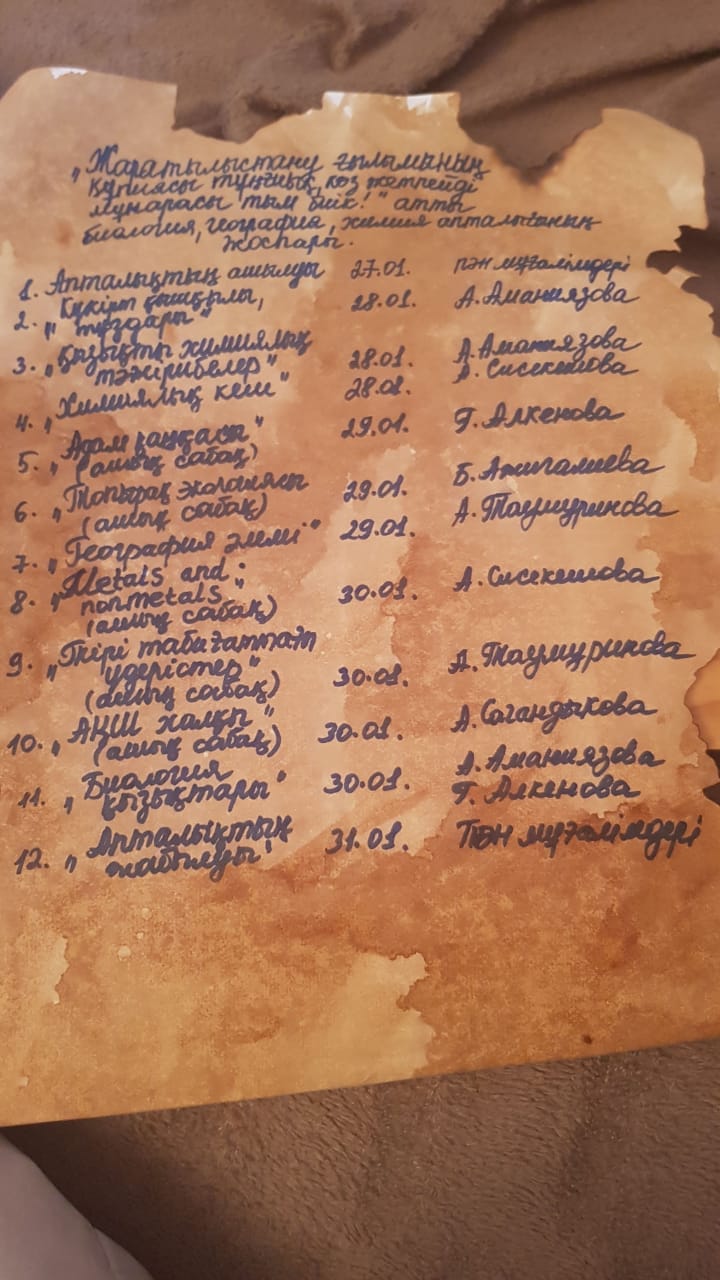 „Жаратылыстану ғылымының
құпиясы тұңғиық, көз жетпейді
мұнарасы тым биік!" атты
биология, география, химия апталығының
жоспары.
1. Апталықтың ашылуы 27.01. пән мұғалімдері
2. Күкірт қышқылы, 28.01. А. Аманиязова
„ тұздары"
3. „Қызықты химиялық 28.01. А. Аманиязова
тәжірибелер" А. Сисекешова
4. „Химиялық кеш" 28.01.
5. „Адам қаңқасы" 29.01. Г. Алкенова
(ашық сабақ)
6. „Топырақ экологиясы 29.01. Б. Ажигалиева
(ашық сабақ)
7. „География әлемі" 29.01. А. Таумуринова
8. „Metals and: 30.01. А. Сисекешова
nonmetals"
(ашық сабақ)
9. „Тірі табиғаттағы 30.01. А. Таумуринова
үдерістер"
(ашық сабақ)
10. „АҚШ халқы" 30.01. А. Сагандыкова
(ашық сабақ)
11. „Биология 30.01. А. Аманиязова
қызықтары" Г. Алкенова
12. „Апталықтың 31.01. Пән мұғалімдері
жабылуы!